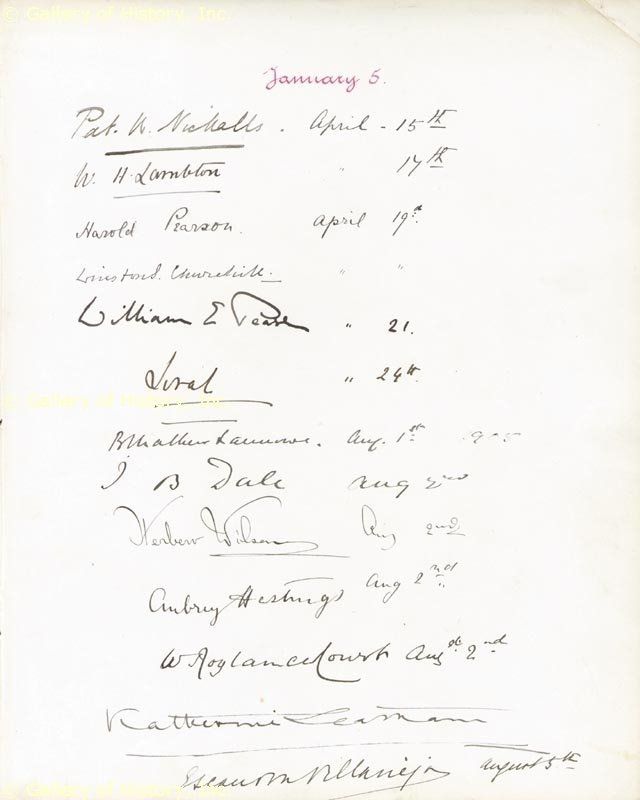 © Gallery of History, Inc.
January 5.
Pat. W. Nickalls. April - 15th
W. H. Lambton " 17th
Harold Pearson. April 19th
Winston S. Churchill. " "
William E Pease " 21.
" 24th
© Gallery of History, Inc.
Aug. 1st 1905
J B Dale Aug 2nd
Herbert Wilson Aug 2nd
Aubrey Hastings Aug 2nd
W Roylance Court Augst 2nd
Katherine
August 5th
© Gallery of History, Inc.